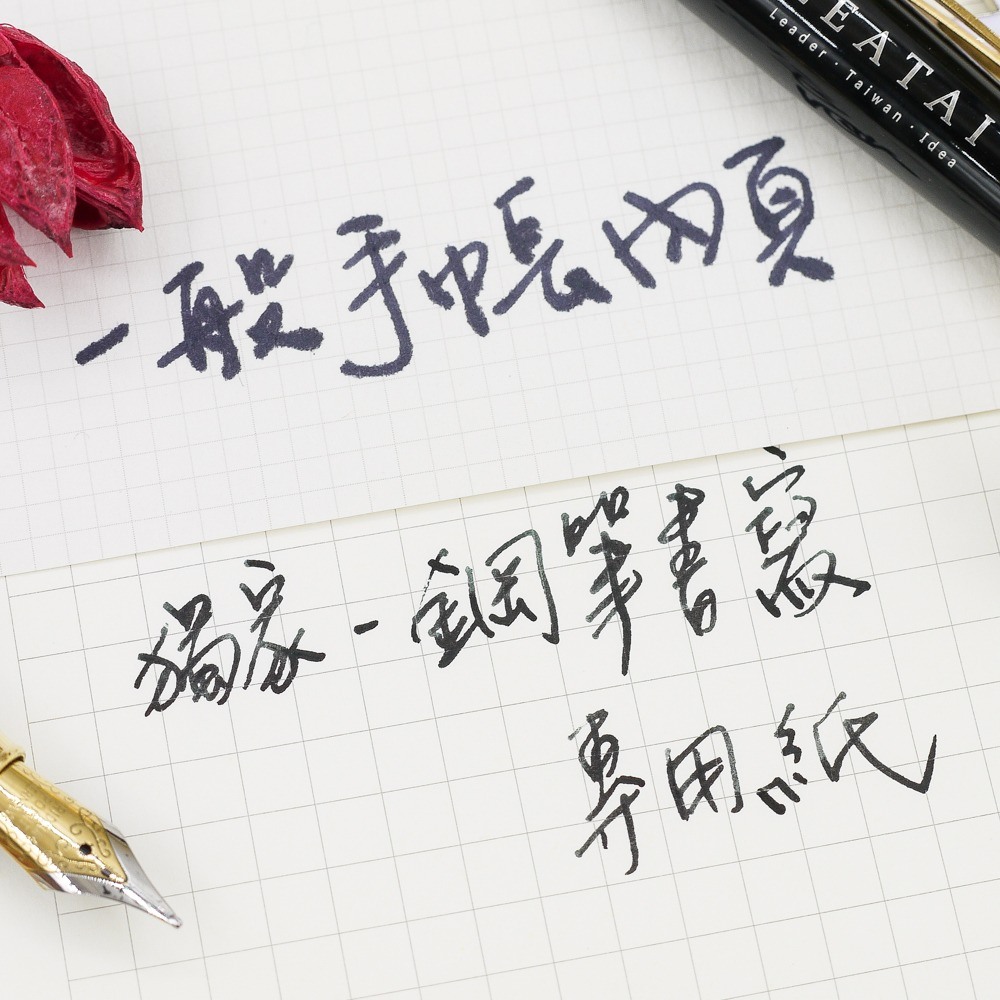 LEATAI
Leader · Taiwan · Idea
一般手帳內頁
獨家-鋼筆書寫
專用紙